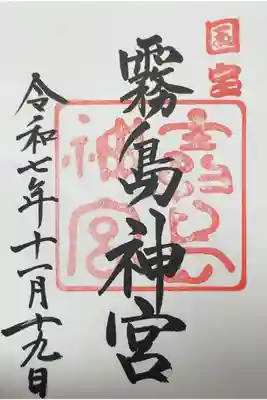 国宝
霧島神宮
令和七年十一月十九日
霧島神宮